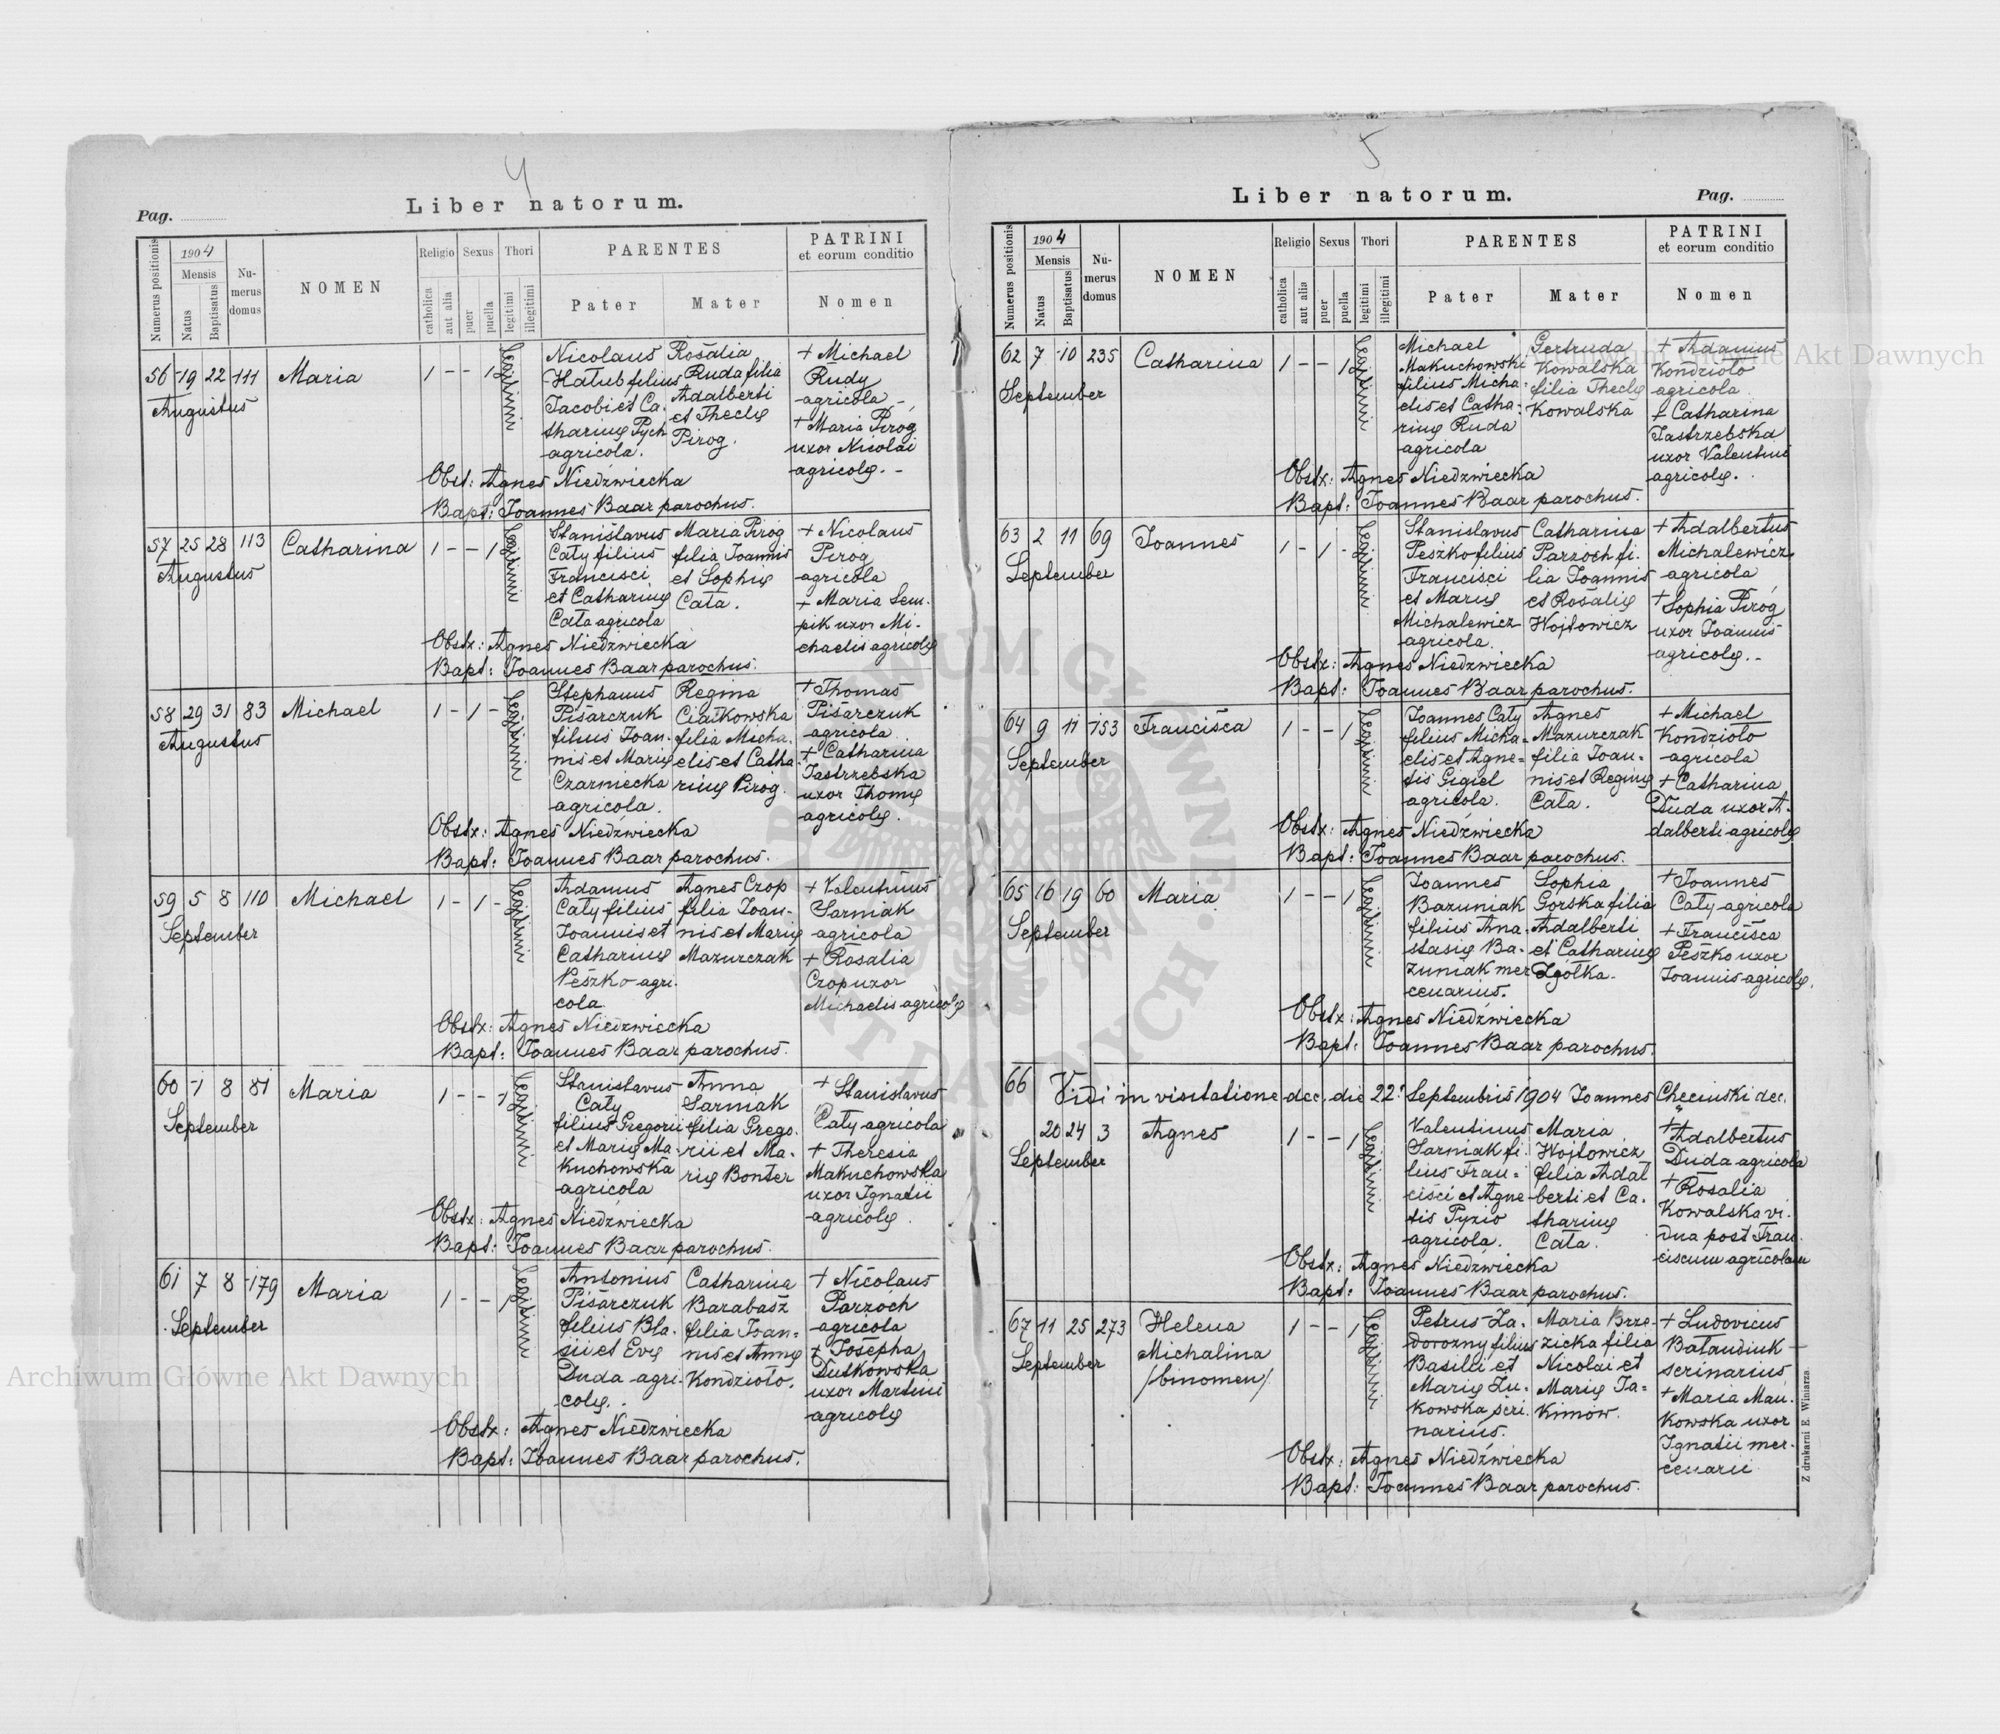 4
Liber natorum.
Pag.
Numerus positionis
1904
Mensis
Natus
Baptisatus
Nu-
merus
domus
NOMEN
Religio
catholica
aut alia
Sexus
puer
puella
Thori
legitimi
illegitimi
PARENTES
Pater
Mater
PATRINI
et eorum conditio
Nomen
56 19 22 111 Maria 1 - - 1 legitimi
Augustus
Nicolaus
Hałub filius
Jacobi et Ca.
tharinę Pych
agricola.
Rosalia
Ruda filia
Adalberti
et Theclę
Pirog.
+ Michael
Rudy
agricola -
+ Maria Piróg
uxor Nicolai
agricolę. -
Obst: Agnes Niedźwiecka
Bapt: Joannes Baar parochus.
57 25 28 113 Catharina 1 - - 1 legitimi
Augustus
Stanislavus
Cały filius
Francisci
et Catharinę
Cała agricola
Maria Pirog
filia Joannis
et Sophię
Cała.
+ Nicolaus
Pirog
agricola
+ Maria Sem.
pik uxor Mi-
chaelis agricolę
Obstx: Agnes Niedźwiecka
Bapt: Joannes Baar parochus.
58 29 31 83 Michael 1 - 1 - legitimi
Augustus
Stephanus
Pisarczuk
filius Joan.
nis et Marię
Czarniecka
agricola.
Regina
Ciaikowska
filia Micha.
elis et Catha.
rinę Pirog.
+ Thomas
Pisarczuk
agricola.
+ Catharina
Jastrzebska
uxor Thomę
agricolę.
Obstx: Agnes Niedźwiecka
Bapt: Joannes Baar parochus.
59 5 8 110 Michael 1 - 1 - legitimi
September
Adamus
Cały filius
Joannis et
Catharinę
Peszko agri.
cola
Agnes Czop
filia Joan-
nis et Marię
Mazurczak
+ Valentinus
Sarniak
agricola
+ Rosalia
Czop uxor
Michaelis agricolę
Obstx: Agnes Niedzwiecka
Bapt: Joannes Baar parochus.
60 1 8 81 Maria 1 - - 1 legitimi
September
Stanislavus
Cały
filius Gregorii
et Marię Ma-
kuchowska
agricola
Anna
Sarniak
filia Grego.
rii et Ma-
rię Bonter
+ Stanislavus
Cały agricola
+ Theresia
Makuchowska
uxor Ignatii
agricolę.
Obstx: Agnes Niedźwiecka
Bapt: Joannes Baar parochus.
61 7 8 179 Maria 1 - - 1 legitimi
September
Antonius
Pisarczuk
filius Bla.
sii et Evę
Duda agri.
colę.
Catharina
Barabasz
filia Joan=
nis et Annę
Kondzioło.
+ Nicolaus
Parzoch
agricola
+ Josepha
Dutkowska
uxor Martini
agricolę
Obstx: Agnes Niedzwiecka
Bapt: Joannes Baar parochus.
5
Liber natorum.
Pag.
Numerus positionis
1904
Mensis
Natus
Baptisatus
Nu-
merus
domus
NOMEN
Religio
catholica
aut alia
Sexus
puer
puella
Thori
legitimi
illegitimi
PARENTES
Pater
Mater
PATRINI
et eorum conditio
Nomen
62 7 10 235 Catharina 1 - - 1 legitimi
September
Michael
Makuchowski
filius Micha-
elis et Catha-
rinę Ruda
agricola
Gertruda
Kowalska
filia Theclę
Kowalska
+ Adamus
Kondzioło
agricola
+ Catharina
Jastrzebska
uxor Valentini
agricolę.
Obstx: Agnes Niedźwiecka
Bapt: Joannes Baar parochus.
63 2 11 69 Joannes 1 - 1 - legitimi
September
Stanislavus
Peszko filius
Francisci
et Marię
Michalewicz
agricola.
Catharina
Parzoch fi.
lia Joannis
et Rosalię
Wojtowicz
+ Adalbertus
Michalewicz
agricola
+ Sophia Piróg
uxor Joannis
agricolę.-
Obstx: Agnes Niedźwiecka
Bapt: Joannes Baar parochus.
64 9 11 153 Francisca 1 - - 1 legitimi
September
Joannes Cały
filius Micha-
elis et Agne-
tis Gigiel
agricola.
Agnes
Mazurczak
filia Joan=
nis et Reginę
Cała.
+ Michael
Kondzioło
agricola
+ Catharina
Duda uxor A.
dalberti agricolę
Obstx: Agnes Niedźwiecka
Bapt: Joannes Baar parochus.
65 16 19 60 Maria 1 - - 1 legitimi
September
Joannes
Bazuniak
filius Ana-
stasię Ba-
zuniak mer
cenarius.
Sophia
Gorska filia
Adalberti
et Catharinę
Zgółka.
+ Joannes
Cały agricola
+ Francisca
Peszko uxor
Joannis agricolę.
Obstx: Agnes Niedźwiecka
Bapt: Joannes Baar parochus.
66
Vidi in visitatione dec. die 22. Septembris 1904 Joannes Checinski dec.
20 24 3 Agnes 1 - - 1 legitimi
September
Valentinus
Sarniak fi.
lius Fran=
cisci et Agne
tis Pyzio
agricola.
Maria
Wojtowicz
filia Adal
berti et Ca.
tharinę
Cała.
+ Adalbertus
Duda agricola
+ Rosalia
Kowalska vi.
dua post Fran.
ciscum agricolam
Obstx: Agnes Niedźwiecka
Bapt: Joannes Baar parochus.
67 11 25 273 Helena 1 - - 1 legitimi
September
Michalina
/binomen/
Petrus Za.
dorozny filius
Basilii et
Marię Żu-
kowska scri.
narius.
Maria Brze-
zicka filia
Nicolai et
Marię Ja=
kimów.
+ Ludovicus
Bałandiuk -
scrinarius
+ Maria Man.
kowska uxor
Ignatii mer.
cenarii
Obstx: Agnes Niedźwiecka
Bapt: Joannes Baar parochus.
Z drukarni E. Winiarza
Archiwum Główne Akt Dawnych
Archiwum Główne Akt Dawnych
ARCHIWUM GŁÓWNE AKT DAWNYCH